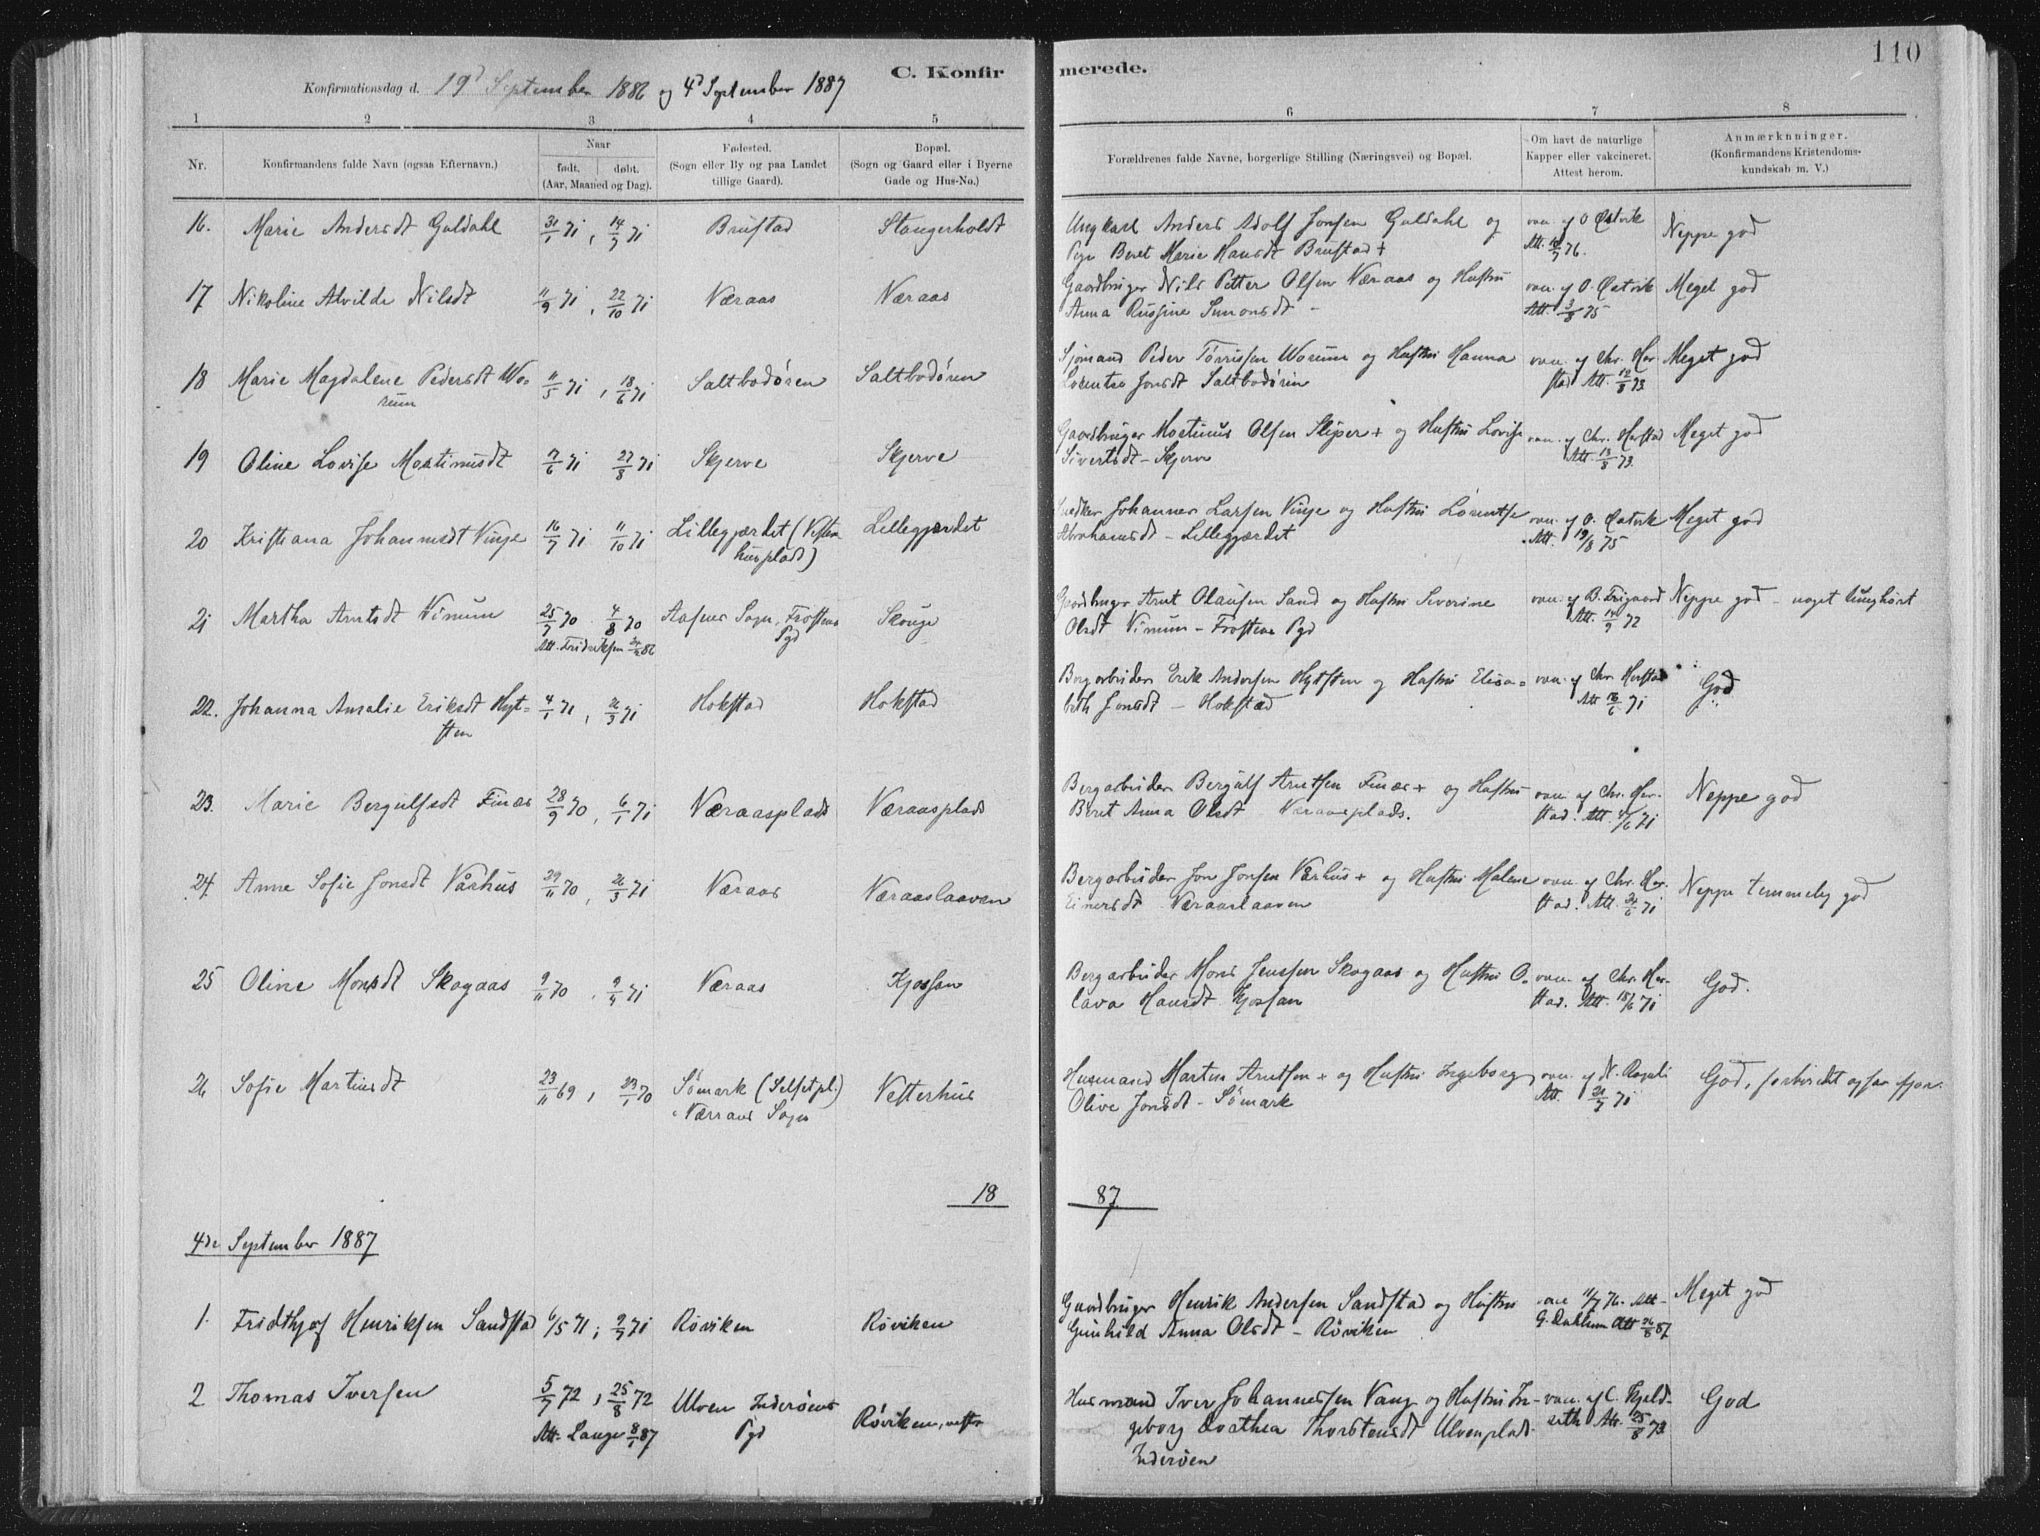 110
C. Konfirmerede.
Konfirmationsdag d. 19d September 1886 og 4d September 1887
1 2 3 4 5 6 7 8
Nr.
Konfirmandens fulde Navn (ogsaa Efternavn.)
Naar
født. døbt.
(Aar, Maaned og Dag).
Fødested.
(Sogn eller By og paa Landet
tillige Gaard).
Bopæl.
(Sogn og Gaard eller i Byerne
Gade og Hus-No.)
Forældrenes fulde Navne, borgerlige Stilling (Næringsvei) og Bopæl.
Om havt de naturlige
Kapper eller vakcineret.
Attest herom.
Anmærknninger.
(Konfirmandens Kristendoms-
kundskab m. V.)
16. Marie Andersdt Guldahl 31/1 71, 14/7 71 Brustad Stangerholdt Ungkarl Anders Adolf Jonsen Guldahl og vac. af O. Østvik Neppe god
Pige Beret Marie Hansdt Brustad + Att. 7 76.
17 Nikoline Alvilde Nilsdt 11/9 71, 22/10 71 Næraas Næraas Gaardbruger Nils Petter Olsen Næraas og Hustru vac. af O. Østvik Meget god
Anna Simonsdt Att. 3/8 75
18 Marie Magdalene Pedersdt Wo= 11/5 71, 18/6 71 Saltbodøren Saltbodøren Sjømand Peder Tørrissen Worum og Hustru Hanna vac. af Chr. Har- Meget god
rum Jonsdt Saltbodøren stad Att. 12/8 73
19 Oline Lovise Mortinusdt 7/6 71 27/8 71 Skjerve Skjerve Gaardbruger Mortinus Olsen Sliper + og Hustru Lovise vac. af Chr. Harstad Meget god
Sivertsdt - Skjerve Att. 13/8 73.
20 Kristiana Johannesdt Vinje 16/7 71 11/10 71 Lillegjærdet (Vester- Lillegjærdet Snedker Johannes Larsen Vinje og Hustru Lorentse vac. af O. Østvik Meget god
husplads) Abrahamsdt - Lillegjærdet Att. 19/8 75
21 Martha Arntsdt Vinum 25/7 70. 4/8 70 Aasens Sogn, Frostens Skouge Gaardbruger Arnt Olausen Sand og Hustru Severine vac. af B. Frigaard Neppe god - noget tunghørt
Att. Fridriksen 86 Pgd Olsdt Vinum - Frostens Pgd Att. 14/9 72
22. Johanna Amalie Eriksdt Hyt= 4/1 71, 26/3 71 Hokstad Hokstad Bergarbeider Erik Andersen Hytsten og Hustru Elisa= vac. af Chr. Harstad God
sten beth Jonsdt - Hokstad Att 16/6 71
23. Marie Bergulfsdt Finæs 28/9 70, 6/1 71 Næraasplads Næraasplads Bergarbeider Bergulf Arntsen Finæs + og Hustru vac. af Chr. Har- Neppe god
Beret Anna Olsdt Næraasplads. stad. Att. 4/6 71
24. Anne Sofie Jonsdt Vårhus 29/11 70, 26/3 71 Næraas Næraaslaaven Bergarbeider Jon Jonsen Vårhus + og Hustru Malene vac. af Chr. Har- Neppe temmelig god
Einersdt Næraaslaaven stad. Att. 6 71
25 Oline Monsdt Skogaas 9/11 70, 9/4 71 Næraas Kjossan Bergarbeider Mons Jenssen Skogaas og Hustru O- vac. af Chr. Har- God.
lava Hansdt Kjossan stad. Att. 18/6 71
26 Sofie Martinsdt 23/11 69, 23/1 70 Sømark (Selsetpl.) Vesterhus Husmand Martin Arntsen + og Hustru Ingeborg vac. af N. God, forberedt ogsaa
Værrans Sogn Olive Jonsdt - Sømark Att. 21/7 71
18 87
4de September 1887
1. Fridthjof Henriksen Sandstad 6/5 71, 9/7 71 Røviken Røviken Gaardbruger Henrik Andersen Sandstad og Hustru vac 11/7 76. Att- Meget god
Gunhild Anna Olsdt - Røviken G. Dahlum Att 26/8 87
2 Thomas Iversen 5/7 72, 25/8 72 Ulven Inderøens Røviken, Husmand Iver Johannessen Vang og Hustru In- vac. af C. Kjeld- God
Att. Lange 8/1 87 Pgd geborg Dorthea Thorstensdt Ulvenplads seth Att. 25/8 73
Inderøen